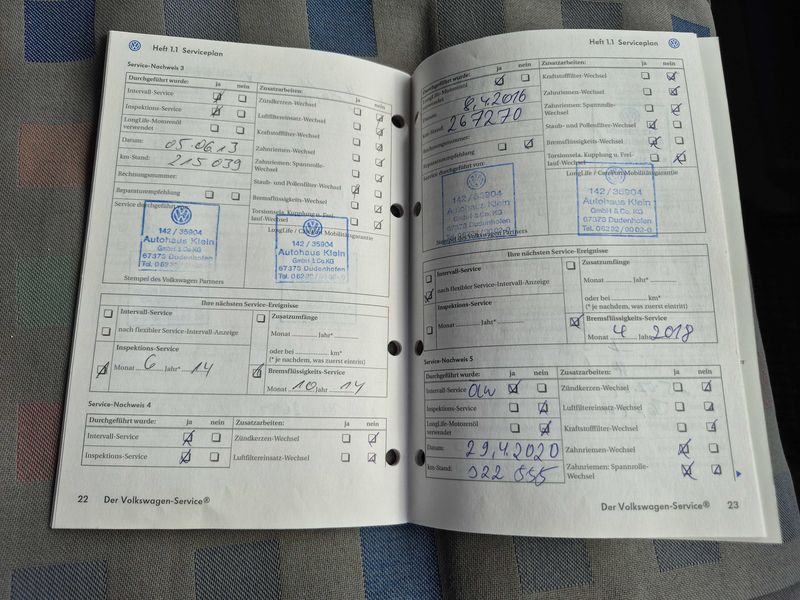 Heft 1.1 Serviceplan
Service-Nachweis 3
Durchgeführt wurde: ja nein
Intervall-Service
Inspektions-Service
LongLife-Motorenöl
verwendet
Datum: 05.06.13
km-Stand: 215 039
Rechnungsnummer:
Reparaturempfehlung
Service durchgeführt von:
142 / 35904
Autohaus Klein
GmbH & Co. KG
67373 Dudenhofen
Stempel des Volkswagen Partners
Zusatzarbeiten: ja nein
Zündkerzen-Wechsel
Luftfiltereinsatz-Wechsel
Kraftstofffilter-Wechsel
Zahnriemen-Wechsel
Zahnriemen: Spannrolle-
Wechsel
Staub- und Pollenfilter-Wechsel
Bremsflüssigkeits-Wechsel
Torsionsela. Kupplung u. Frei-
lauf-Wechsel
LongLife / CarePort Mobilitätsgarantie
142 / 35904
Autohaus Klein
GmbH & Co. KG
67373 Dudenhofen
Ihre nächsten Service-Ereignisse
Intervall-Service
nach flexibler Service-Intervall-Anzeige
Inspektions-Service
Monat 6 Jahr* 14
Zusatzumfänge
Monat Jahr*
oder bei km*
(* je nachdem, was zuerst eintritt)
Bremsflüssigkeits-Service
Monat 10 Jahr 14
Service-Nachweis 4
Durchgeführt wurde: ja nein
Intervall-Service
Inspektions-Service
Zusatzarbeiten: ja nein
Zündkerzen-Wechsel
Luftfiltereinsatz-Wechsel
22 Der Volkswagen-Service®
Heft 1.1 Serviceplan
Durchgeführt wurde: ja nein
LongLife-Motorenöl
verwendet
Datum: 8.4.2016
km-Stand: 267270
Reparaturempfehlung
Service durchgeführt von:
142 / 35904
Autohaus Klein
GmbH & Co. KG
67373 Dudenhofen
Stempel des Volkswagen Partners
Zusatzarbeiten: ja nein
Kraftstofffilter-Wechsel
Zahnriemen-Wechsel
Zahnriemen: Spannrolle-
Wechsel
Staub- und Pollenfilter-Wechsel
Bremsflüssigkeits-Wechsel
Torsionsela. Kupplung u. Frei-
lauf-Wechsel
LongLife / CarePort Mobilitätsgarantie
142 / 35904
Autohaus Klein
GmbH & Co. KG
67373 Dudenhofen
Ihre nächsten Service-Ereignisse
Intervall-Service
nach flexibler Service-Intervall-Anzeige
Inspektions-Service
Monat Jahr*
Zusatzumfänge
Monat Jahr*
oder bei km*
(* je nachdem, was zuerst eintritt)
Bremsflüssigkeits-Service
Monat 4 Jahr 2018
Service-Nachweis 5
Durchgeführt wurde: ja nein
Intervall-Service
Inspektions-Service
LongLife-Motorenöl
verwendet
Datum: 29.4.2020
km-Stand: 322 855
Zusatzarbeiten: ja nein
Zündkerzen-Wechsel
Luftfiltereinsatz-Wechsel
Kraftstofffilter-Wechsel
Zahnriemen-Wechsel
Zahnriemen: Spannrolle-
Wechsel
Der Volkswagen-Service® 23